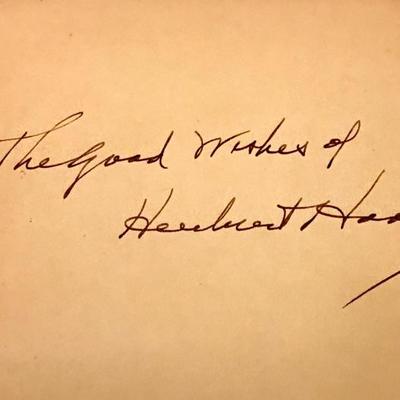 The Good Wishes of
Herbert Hoo